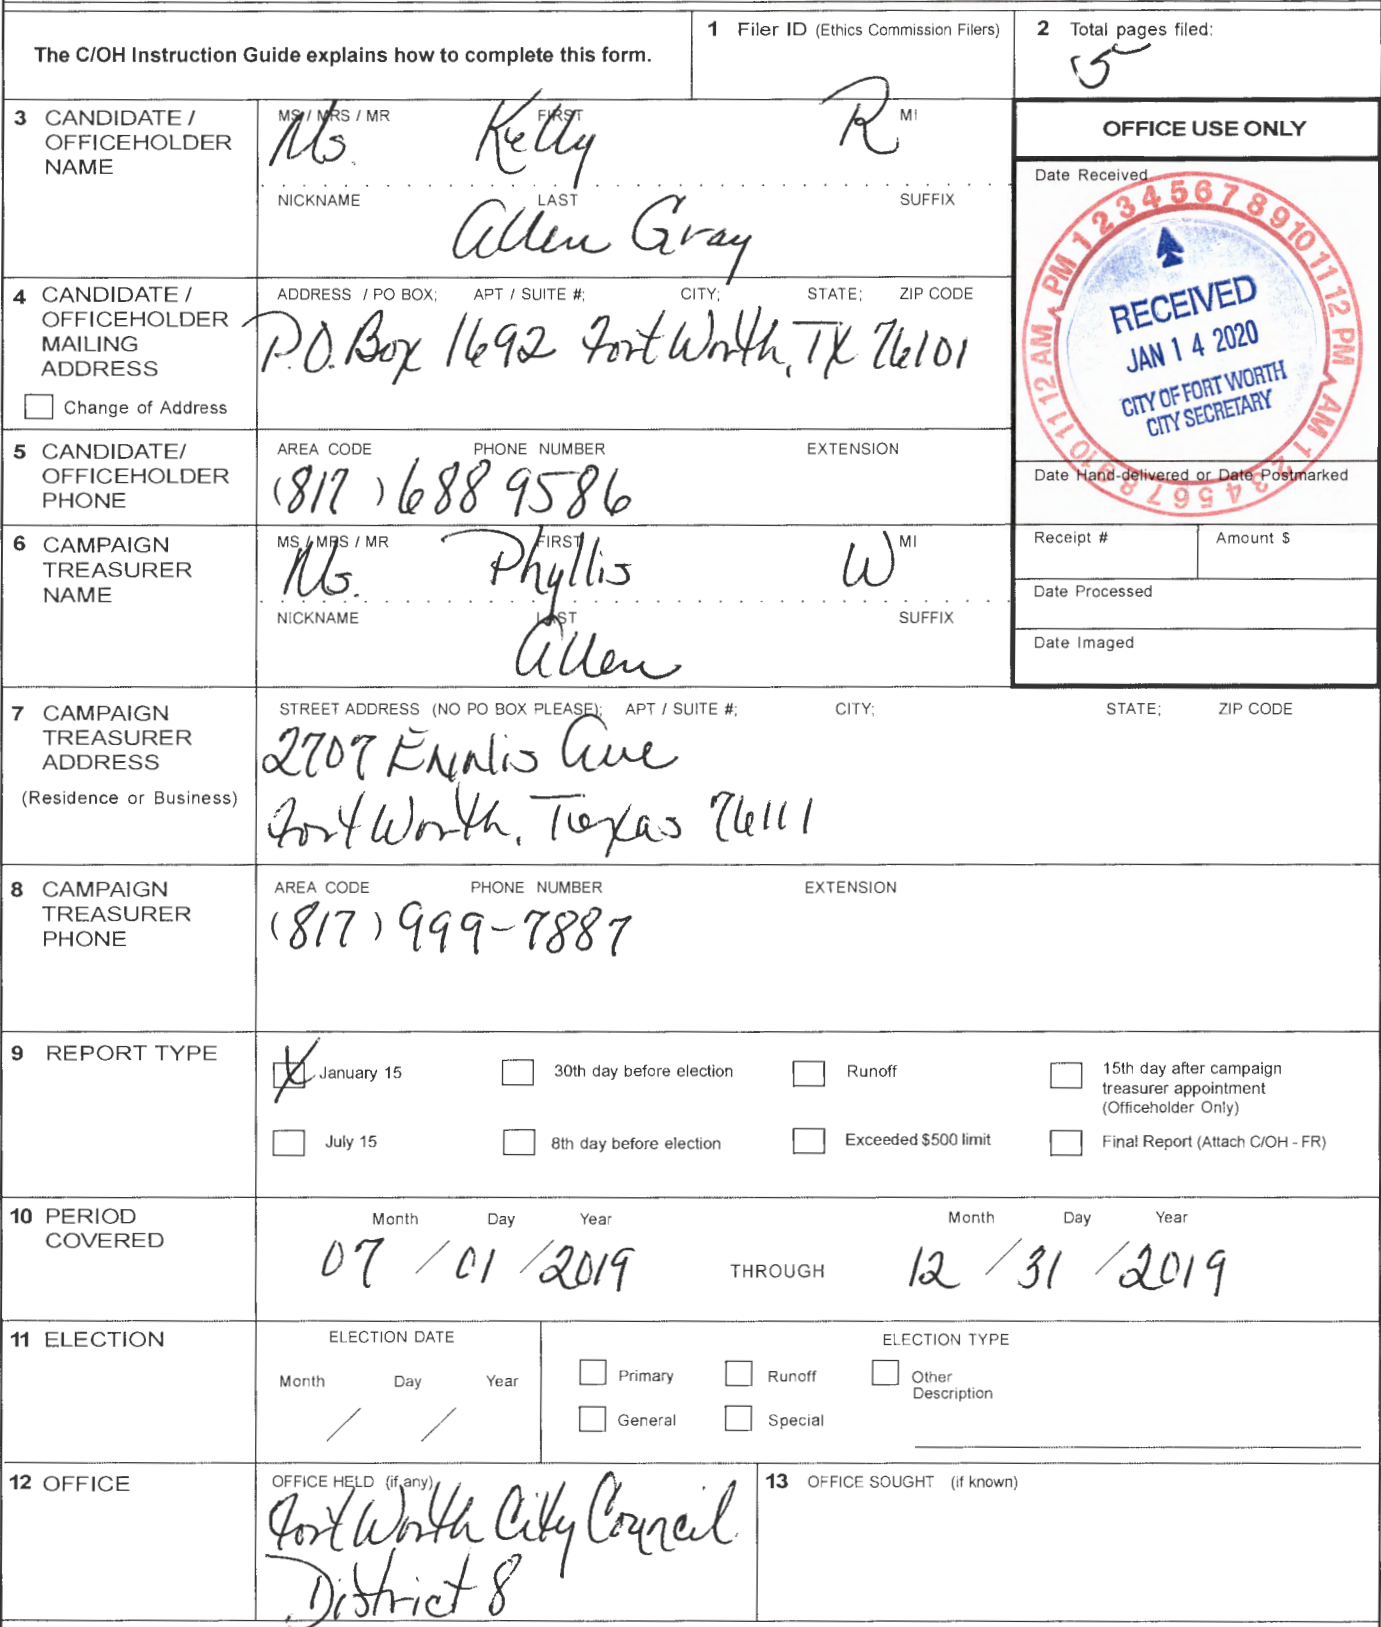 The C/OH Instruction Guide explains how to complete this form.
1 Filer ID (Ethics Commission Filers)
2 Total pages filed:
5
3 CANDIDATE / OFFICEHOLDER NAME
MS / MRS / MR FIRST MI
Ms. Kelly R
NICKNAME LAST SUFFIX
Allen Gray
OFFICE USE ONLY
Date Received
12 AM PM 1 2 3 4 5 6 7 8 9 10 11 12 PM AM 1 2 3 4 5 6 7 8 9 10 11
RECEIVED
JAN 14 2020
CITY OF FORT WORTH
CITY SECRETARY
Date Hand-delivered or Date Postmarked
Receipt # Amount $
Date Processed
Date Imaged
4 CANDIDATE / OFFICEHOLDER MAILING ADDRESS
Change of Address
ADDRESS / PO BOX; APT / SUITE #; CITY; STATE; ZIP CODE
P.O. Box 1692 Fort Worth, TX 76101
5 CANDIDATE/ OFFICEHOLDER PHONE
AREA CODE PHONE NUMBER EXTENSION
(817) 688 9586
6 CAMPAIGN TREASURER NAME
MS / MRS / MR FIRST MI
Ms. Phyllis W
NICKNAME LAST SUFFIX
Allen
7 CAMPAIGN TREASURER ADDRESS
(Residence or Business)
STREET ADDRESS (NO PO BOX PLEASE); APT / SUITE #; CITY; STATE; ZIP CODE
2707 Ennis Ave
Fort Worth, Texas 76111
8 CAMPAIGN TREASURER PHONE
AREA CODE PHONE NUMBER EXTENSION
(817) 999-7887
9 REPORT TYPE
X January 15 30th day before election Runoff 15th day after campaign treasurer appointment (Officeholder Only)
July 15 8th day before election Exceeded $500 limit Final Report (Attach C/OH - FR)
10 PERIOD COVERED
Month Day Year Month Day Year
07 / 01 / 2019 THROUGH 12 / 31 / 2019
11 ELECTION
ELECTION DATE
Month Day Year
/ /
ELECTION TYPE
Primary Runoff Other Description
General Special
12 OFFICE
OFFICE HELD (if any)
Fort Worth City Council
District 8
13 OFFICE SOUGHT (if known)